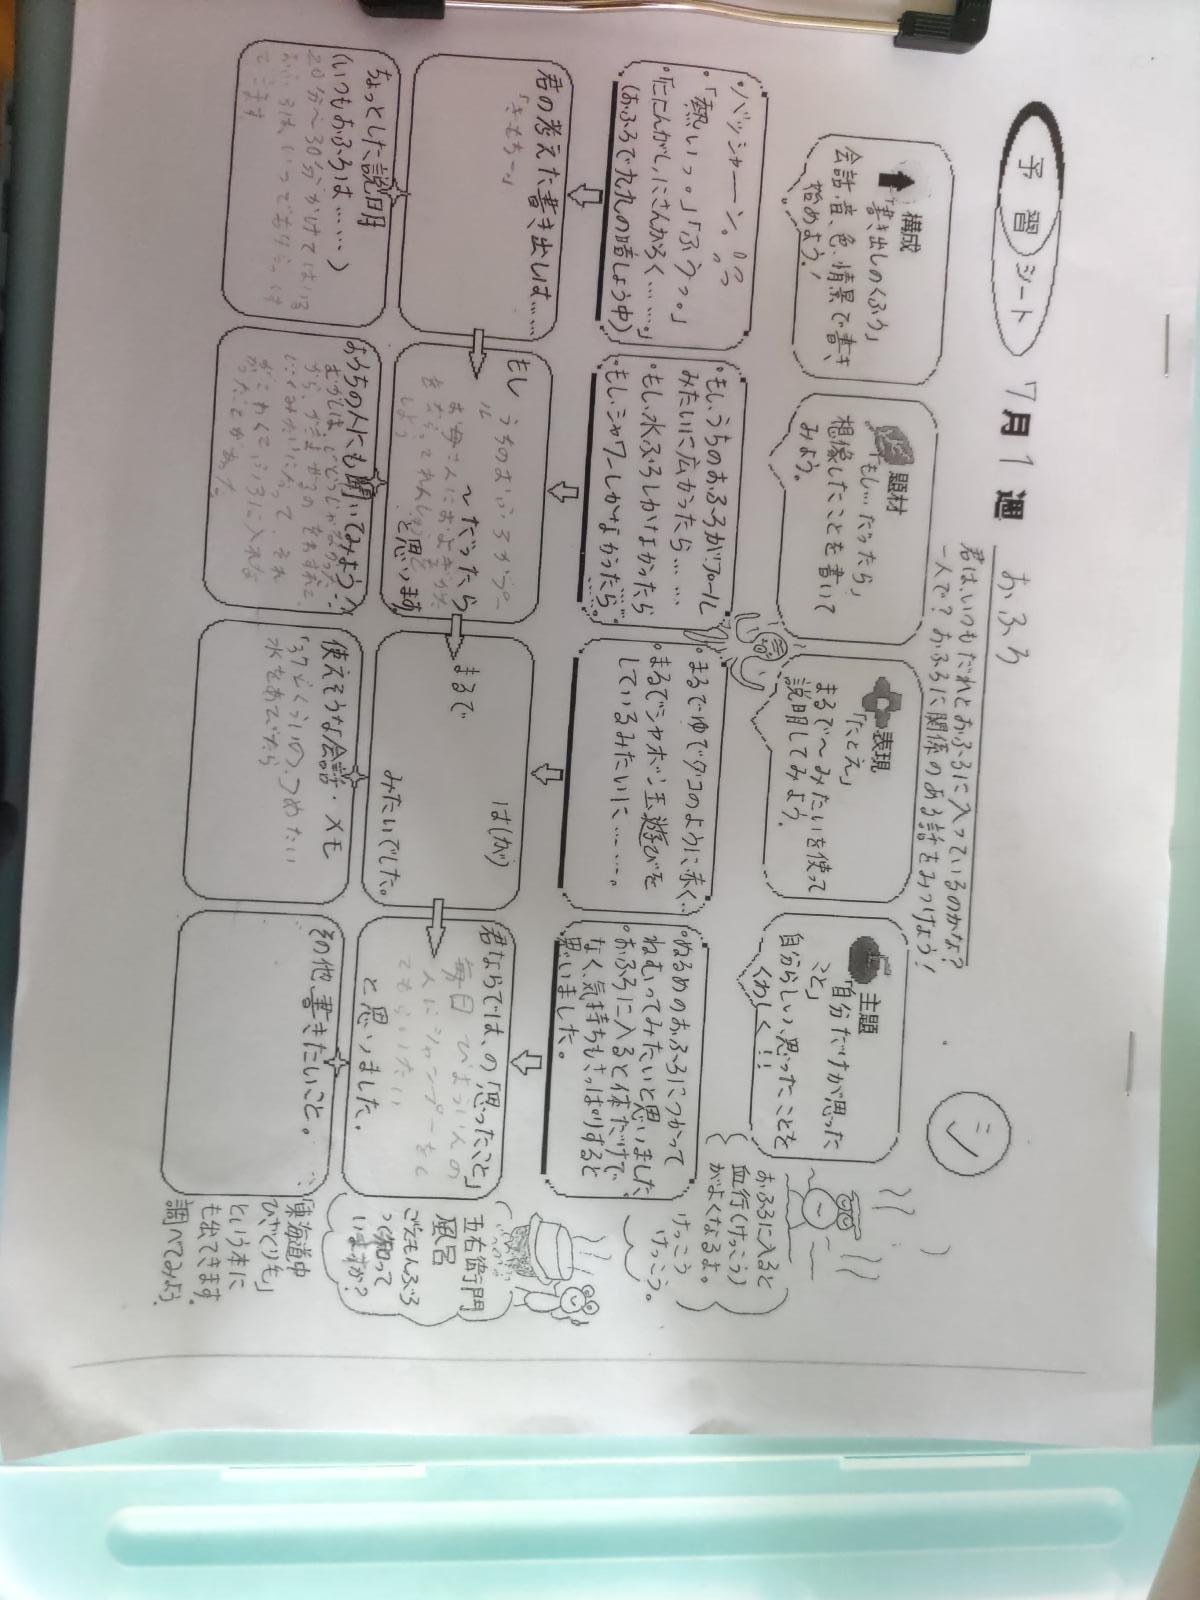 予習シート 7月1週 おふろ
君は、いつもだれとおふろに入っているのかな?
一人で?おふろに関係のある話をみつけよう!
シ
構成
「書き出しのくふう」
会話、音、色、情景で書き
始めよう!
題材
「もし…だったら」
想像したことを書いて
みよう。
表現
「たとえ」
まるで〜みたいを使って
説明してみよう。
主題
「自分だけが思った
こと」
自分らしい、思ったことを
くわしく!!
おふろに入ると
血行(けっこう)
がよくなるよ。
けっこう
けっこう。
・バッシャーン。
・「熱いっ。」「ふうっ。」
・「ににんがし、にさんがろく……。」
(おふろで九九の暗しょう中)
・もし、うちのおふろがプール
みたいに広かったら……
・もし、水ぶろしかなかったら
・もし、シャワーしかなかったら……
・まるでゆでダコのように赤く…
・まるでシャボン玉遊びを
しているみたいに……。
・ぬるめのおふろにつかって
ねむってみたいと思いました
・おふろに入ると体だけで
なく、気持ちもさっぱりすると
思いました。
君の考えた書き出しは……
「きもちー」
もし うちのおふろがプー
ル
〜だったら
お母さんにおよぎかた
をならってれんしゅうを
しよう
と思います
まるで
は(が)
みたいでした。
君ならでは、の「思ったこと」
毎日 びよういんの
人にシャンプーをし
てもらいたい
と思いました。
五右衛門
風呂
ごえもんぶろ
って知って
いますか?
ちょっとした説明
(いつもおふろは……)
20分〜30分かけてはいる
おふろはいつでもわらっ
てます
おうちの人にも聞いてみよう!
むかしは、じどうじゃなかった
から
がこわくておふろに入れな
かったことがあった。
使えそうな会話・メモ
「37どくらいの、つめたい
水をあびたら
その他 書きたいこと。
「東海道中
ひざくりげ」
という本に
も出てきます。
調べてみよう。